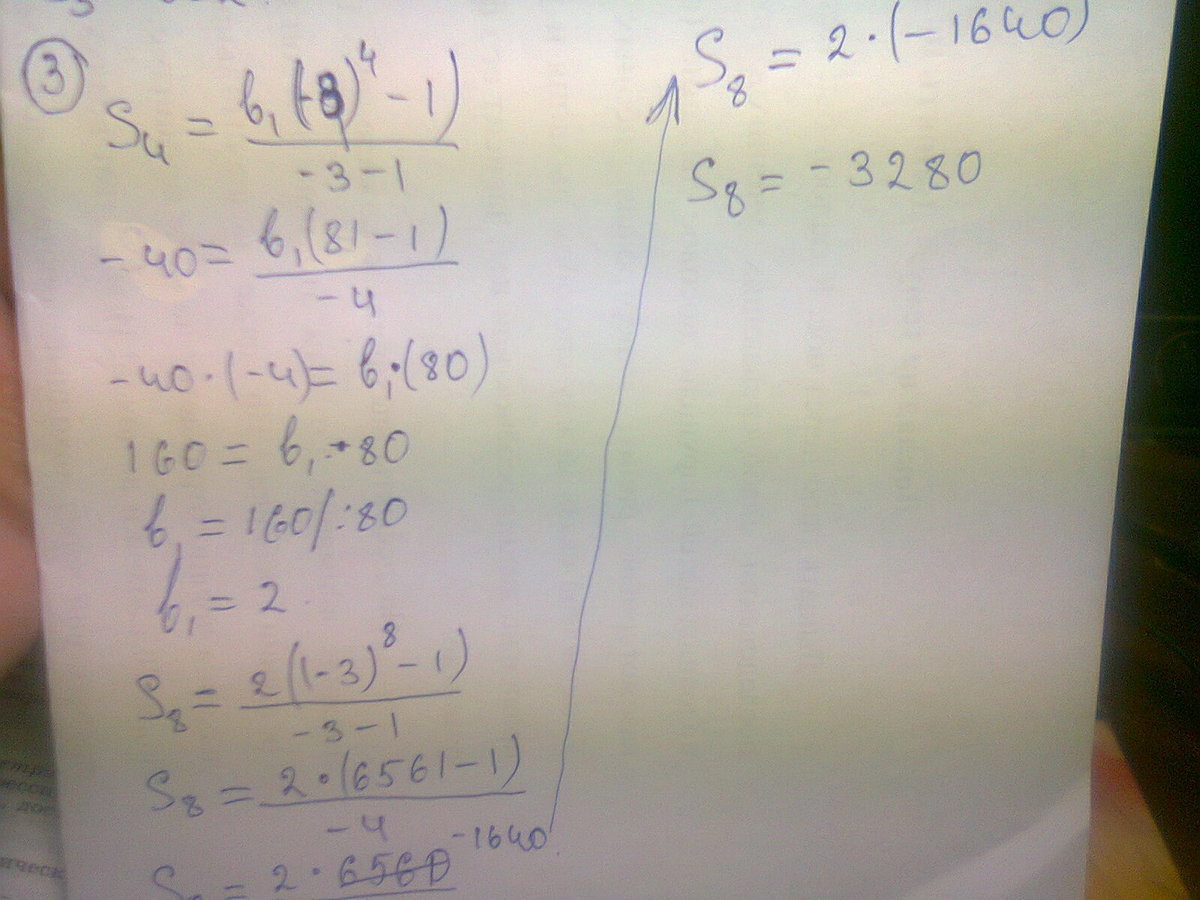 ③
S₄ = b₁((-3)⁴ - 1) / -3 - 1
-40 = b₁(81 - 1) / -4
-40 · (-4) = b₁ · (80)
160 = b₁ · 80
b₁ = 160 / : 80
b₁ = 2
S₈ = 2((-3)⁸ - 1) / -3 - 1
S₈ = 2 · (6561 - 1) / -4
S₈ = 2 · 6560 -1640
S₈ = 2 · (-1640)
S₈ = -3280